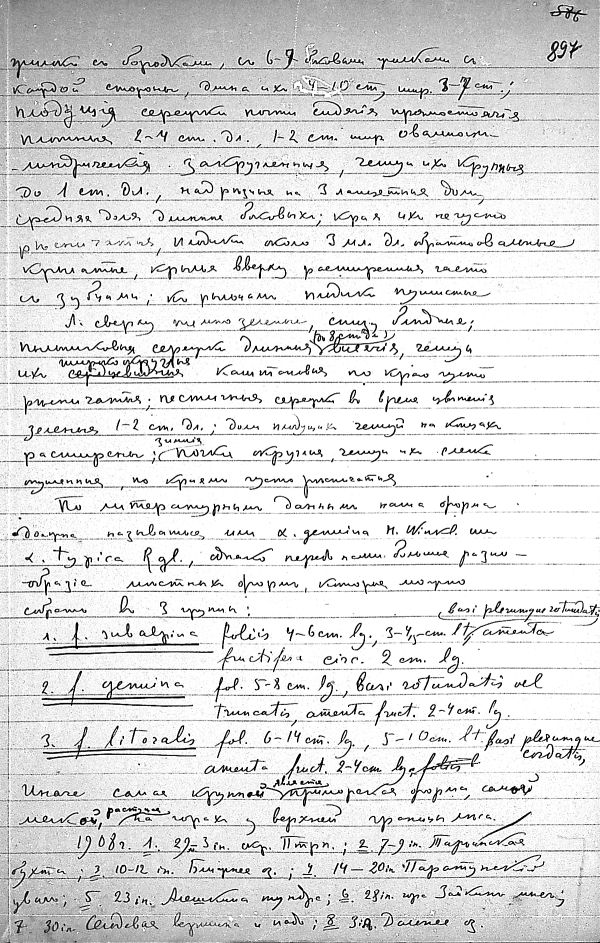 891
жилокъ съ бородками, съ 6-9 боковыми жилками съ
каждой стороны, длина ихъ 4-10 cm, шир. 3-7 cm.;
плодущія сережки почти сидячія прямостоячія
плотныя 2-4 cm. дл., 1-2 cm. шир овально ци-
-линдрическія. Закругленныя, чешуи ихъ крупныя
до 1 cm. дл., надрѣзныя на 3 ланцетныя доли,
средняя доля длиннѣе боковыхъ; края ихъ не густо
рѣсничатыя, плодики около 3 мл. дл. обратноовальные
крылатые, крылья вверху расширенныя часто
съ зубчами; плодики пушистые
Л. сверху темно зеленые, снизу блѣдные;
пыльниковыя сережки длинныя (до 8 cm дл.) висячія, чешуи
ихъ широкоокруглыя каштановыя по краю густо
рѣсничатыя; пестичныя сережки въ время цвѣтенія
зеленыя 1-2 cm. дл.; доли плодущихъ чешуй на концахъ
расширены; зимнія почки округлыя, чешуи ихъ слегка
опушенныя, по краямъ густо рѣсничатыя
По литературнымъ даннымъ наша форма
должна называться или α. genuina H. Winkl. или
α. typica Rgl., однако передъ нами большое разно-
-образіе мѣстныхъ формъ, которыя можно
собрать въ 3 группы:
1. f. subalpina foliis 4-6 cm. lg., 3-4,5 cm. lt, basi plerumque rotundatis, amenta
fructifera circ. 2 cm. lg.
2. f. genuina fol. 5-8 cm. lg., basi rotundatis vel
truncatis, amenta fruct. 2-4 cm. lg.
3. f. litoralis fol. 6-14 cm. lg., 5-10 cm. lt basi plerumque cordatis,
amenta fruct. 2-4 cm lg.
Иначе самая крупной является приморская форма, самой
мелкой, растущая на горахъ у верхней границы лѣса.
1908 г. 1. 29 in. окр. Птрп.; 2 7-9 in. Тарьинская
бухта; 3 10-12 in. Ближнее оз.; 4 14-20 in Паратунскій
увалъ; 5. 23 in. тундра; 6. 28 in. гора Зайкинъ мысъ;
7 30 in вершина и падь; 8 Далнее оз.